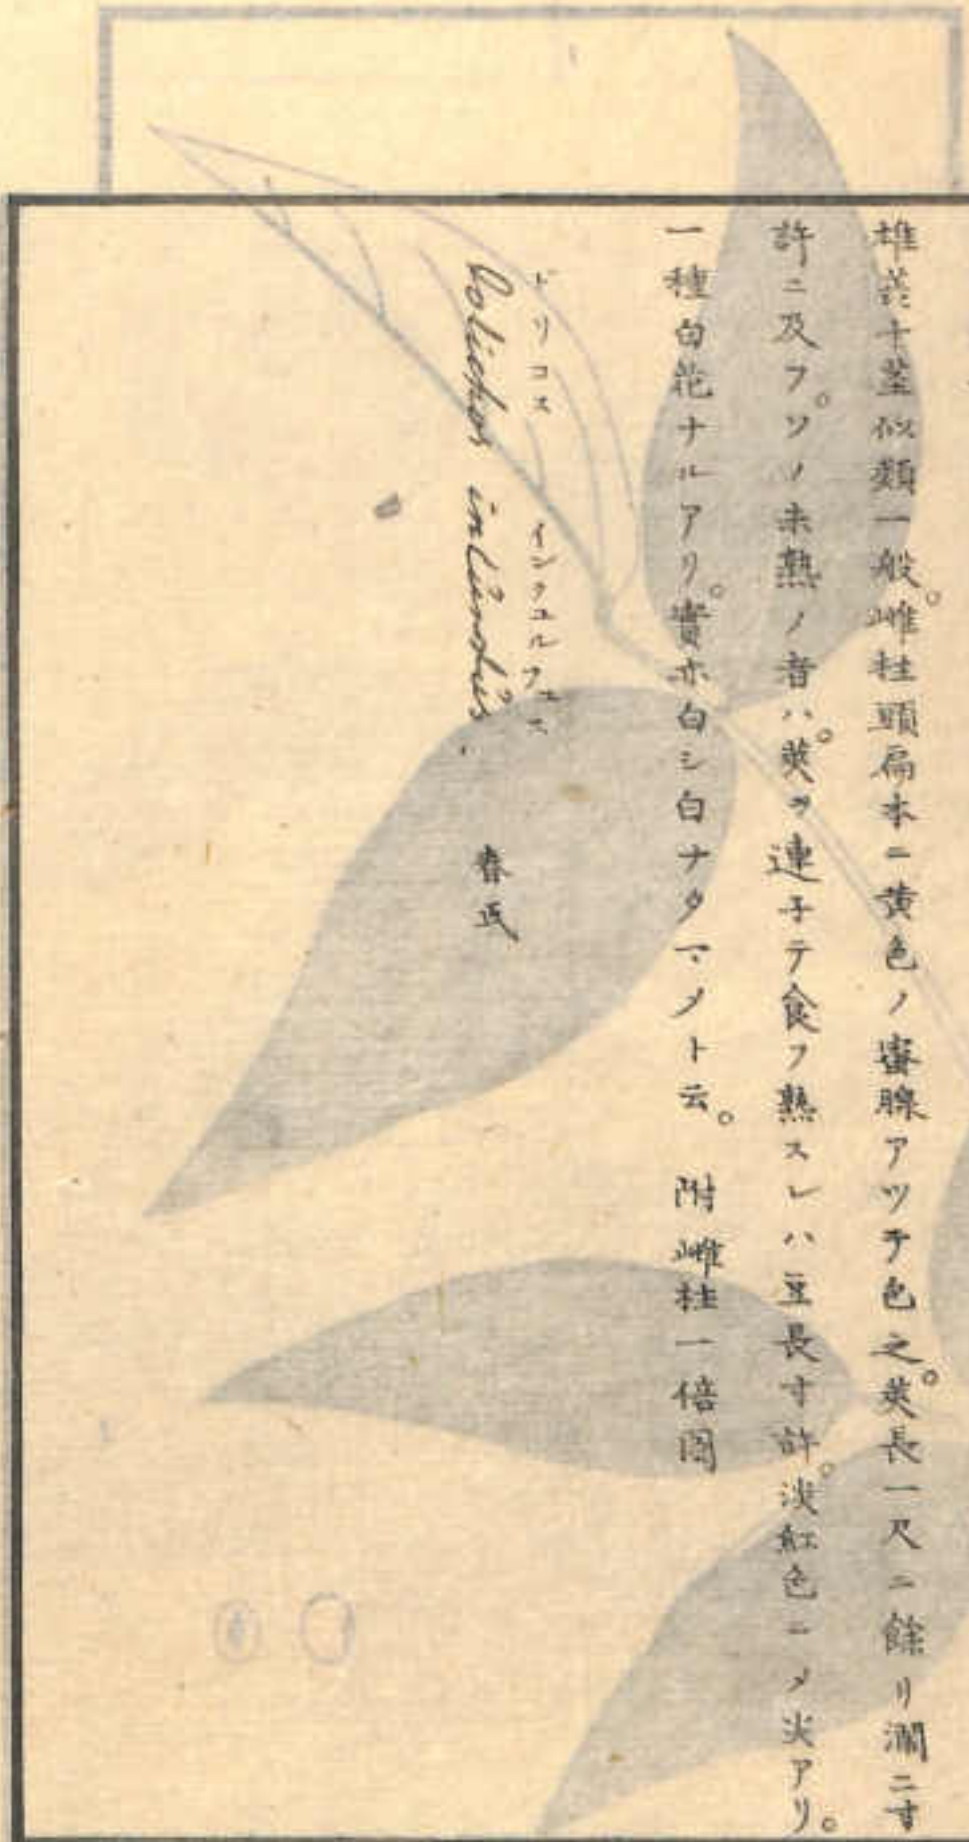 雄蕋十莖似類一般。雌柱頭扁本ニ黄色ノ蜜腺アツテ色之。莢長一尺ニ餘リ濶二寸
許ニ及フ。ソノ未熟ノ者ハ。莢ヲ連子テ食フ熟スレハ豆長寸許。淡紅色ニメ尖アリ。
一種白花ナルアリ。實亦白シ白ナタマメト云。 附雌柱一倍圖
ドリコス インクユルフュス
Dolichos incurvus. 春氏